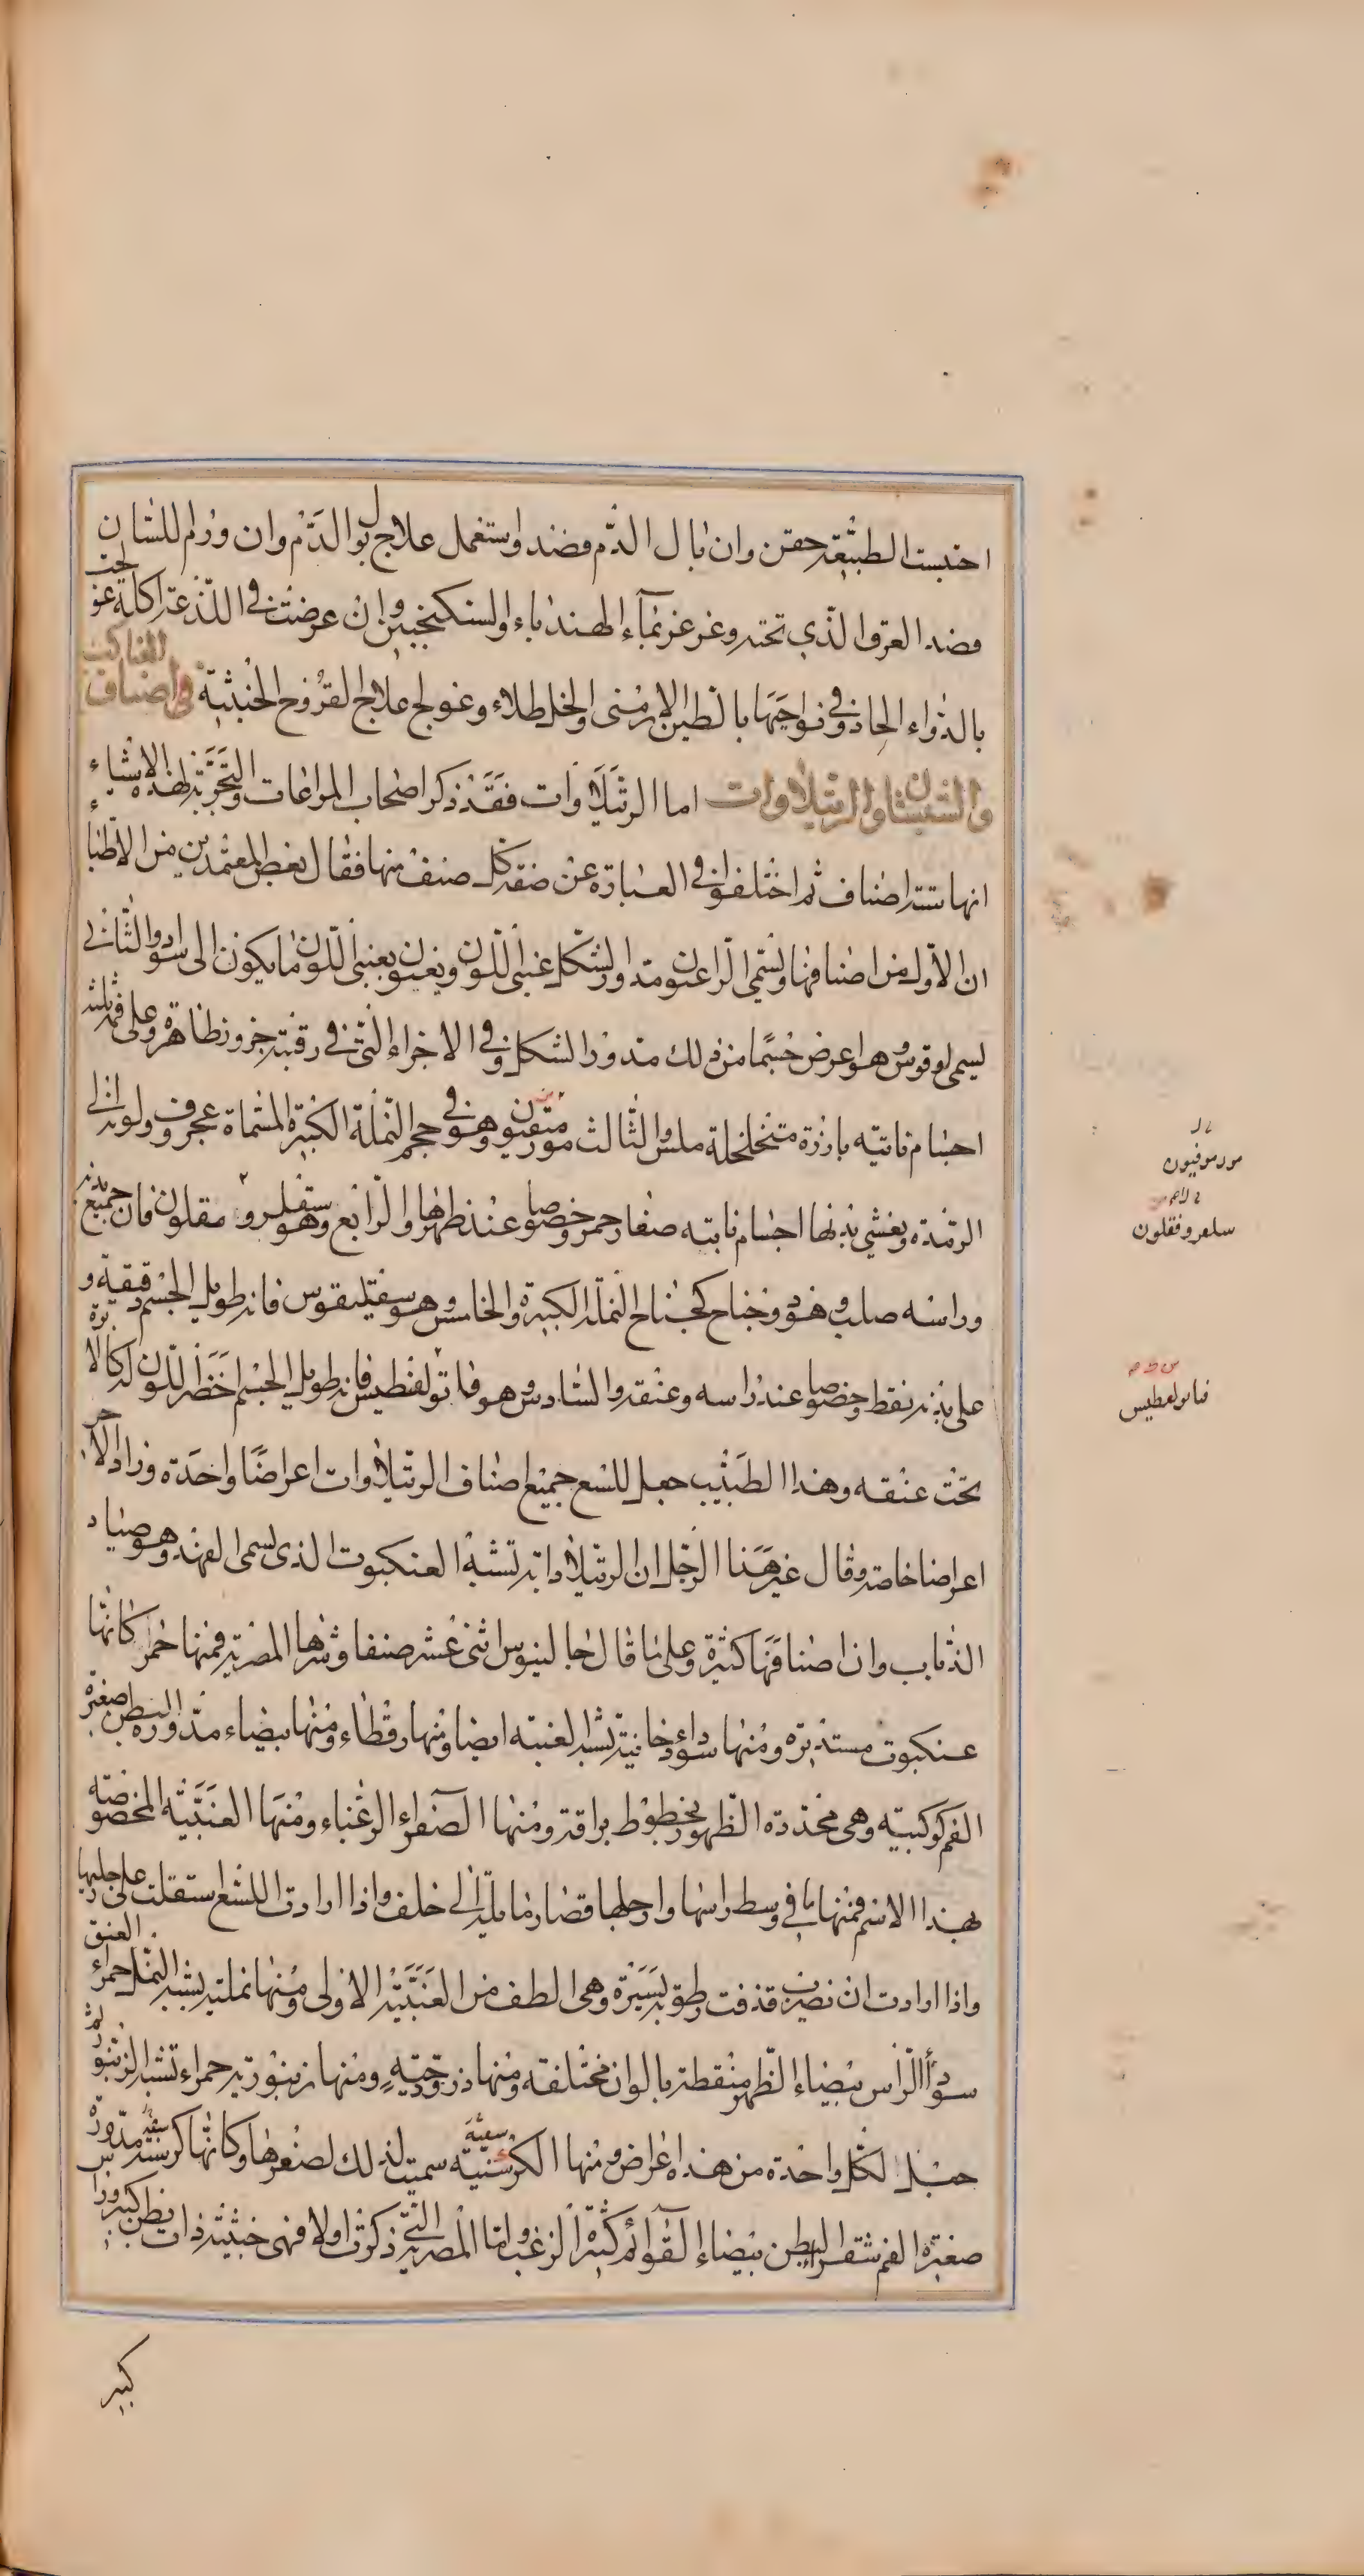 احتبست الطبيعة حقن وان بال الدم فصد واستعمل علاج بول الدم وان ورم اللسان
فصد العرق الذي تحته وغرغر بماء الهندباء والسكنجبين وان عرضت في اللذعة اكلة عولجت
بالدواء الحاد وفي نواحيها بالطين الارمني والخل طلاء وعولج علاج القروح الخبيثة في اصناف العناكب
والشبثان والرتيلاوات اما الرتيلاوات فقد ذكر اصحاب المراعات والتجربة لهذه الاشياء
انها ستة اصناف ثم اختلفوا في العبارة عن صفة كل صنف منها فقال بعض المعتمدين من الاطباء
ان الاول من اصنافها ويسمى الراعن مدور الشكل عنبي اللون ويعنون بعنبي اللون ما يكون الى سواد والثاني
يسمى لوقوس وهو اعرض جسما من ذلك مدور الشكل وفي الاجزاء التي في رقبته حزوز ظاهرة وعلى فمه ثلثة
اجسام ناتية بارزة متخلخلة ملس والثالث وهو في حجم النملة الكبيرة المسماة عجروف ولونه الى
الرمدة ويغشي بدنها اجسام نابته صغار حمر وخصوصا عند ظهرها والرابع وهو سقليرو مقلون فان جميع بدنه
وراسه صلب وهو ذو جناح كجناح النملة الكبيرة والخامس وهو سفيليقوس فانه طويل الجسم دقيقه و
على بدنه نقط وخصوصا عند راسه وعنقه والسادس هو فانولفطيس فانه طويل الجسم اخضر اللون له كالابرة
تحت عنقه وهذا الطبيب جعل للسع جميع اصناف الرتيلاوات اعراضا واحدة وزاد الاخر
اعراضا خاصة وقال غير هذا الرجل ان الرتيلا دابة تشبه العنكبوت الذي يسمى الفهد وهو صياد
الذباب وان اصنافها كثيرة وعلى ما قال جالينوس اثنى عشر صنفا وشرها المصرية فمنها حمر كانها
عنكبوت مستديرة ومنها سوداء دخانية تشبه العنبه ايضا ومنها رقطاء ومنها بيضاء مدورة البطن صغيرة
الفم كوكبية وهي محددة الظهور بخطوط براقة ومنها الصفراء الزغباء ومنها العنبية المخصوصة
بهذا الاسم فمنها ما في وسط راسها وارجلها قصار مائلة الى خلف واذا ارادت اللسع استقلت على رجليها
واذا ارادت ان تضرب قذفت رطوبة يسيرة وهي الطف من العنبية الاولى ومنها نملية يشبه النمل حمراء العنق
سوداء الراس بيضاء الظهر منقطة بالوان مختلفة ومنها ذروحية ومنها زنبورية حمراء تشبه الزنبور ثم
جعل لكل واحدة من هذه اعراض ومنها الكرسنية سميت لذلك لصغرها وكانها كرسنة مدورة
صغيرة الفم شقراء البطن بيضاء القوائم كثيرة الزغب واما المصرية التي ذكرت اولا فهي خبيثة ذات بطن كبير وراس
كبير
مورموفيون
سلعروفقلون
فانولفطيس